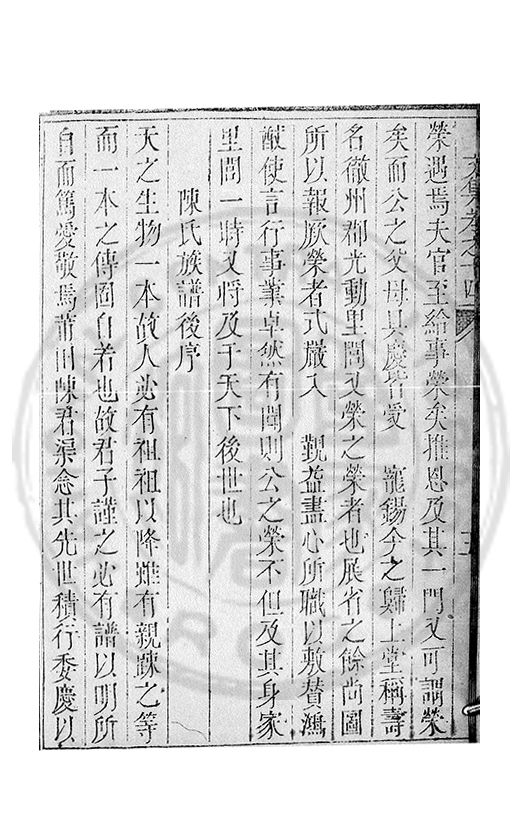 榮遇焉夫官至給事榮矣推恩及其一門又可謂榮
矣而公之父母具慶皆受 寵錫今之歸上堂稱壽
名徹州郡光動里閭又榮之榮者也展省之餘尚圖
所以報厥榮者式嚴入 覲益盡心所職以敷贊鴻
猷使言行事業卓然有聞則公之榮不但及其身家
里閭一時又將及于天下後世也
陳氏族譜後序
天之生物一本故人必有祖祖以降雖有親踈之等
而一本之傳固自若也故君子謹之必有譜以明所
自而篤愛敬焉莆田陳君渠念其先世積行委慶以